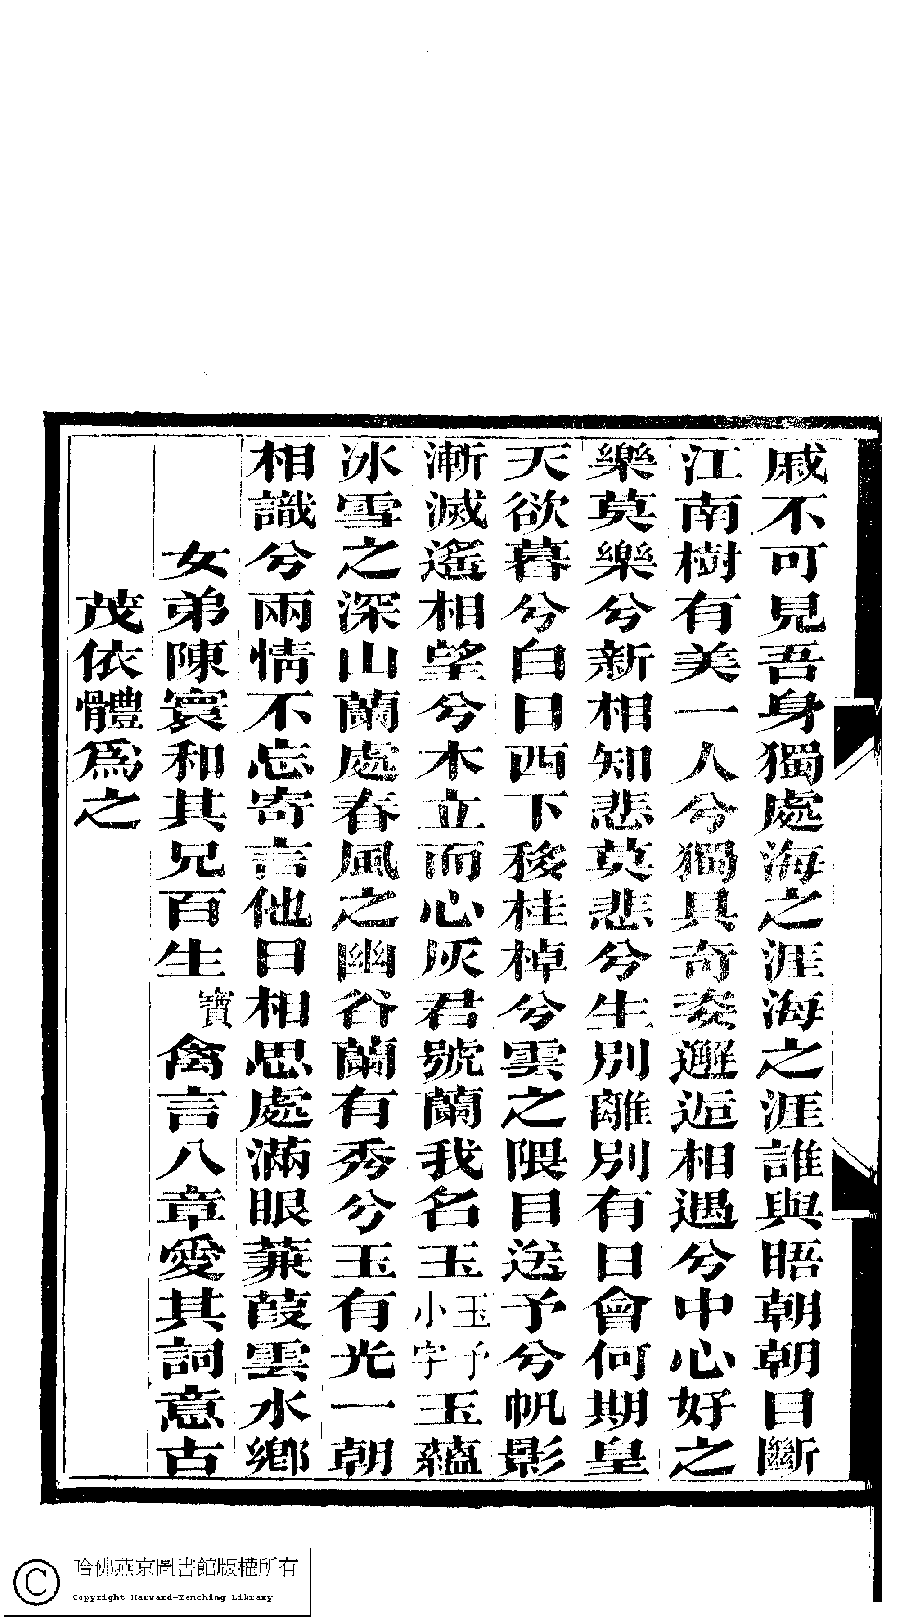 戚不可見吾身獨處海之涯海之涯誰與晤朝朝日斷
江南樹有美一人兮獨具奇姿邂逅相遇兮中心好之
樂莫樂兮新相知悲莫悲兮生別離別有日會何期皇
天欲暮兮白日西下移桂棹兮雲之隈目送予兮帆影
漸滅遙相望兮木立而心灰君號蘭我名玉玉予小字玉蘊
冰雪之深山蘭處春風之幽谷蘭有秀兮玉有光一朝
相識兮兩情不忘寄言他日相思處滿眼蒹葭雲水鄉
女弟陳寰和其兄百生寶禽言八章愛其詞意古
茂依體爲之
哈佛燕京圖書館版權所有
Copyright Harvard-Yenching Library